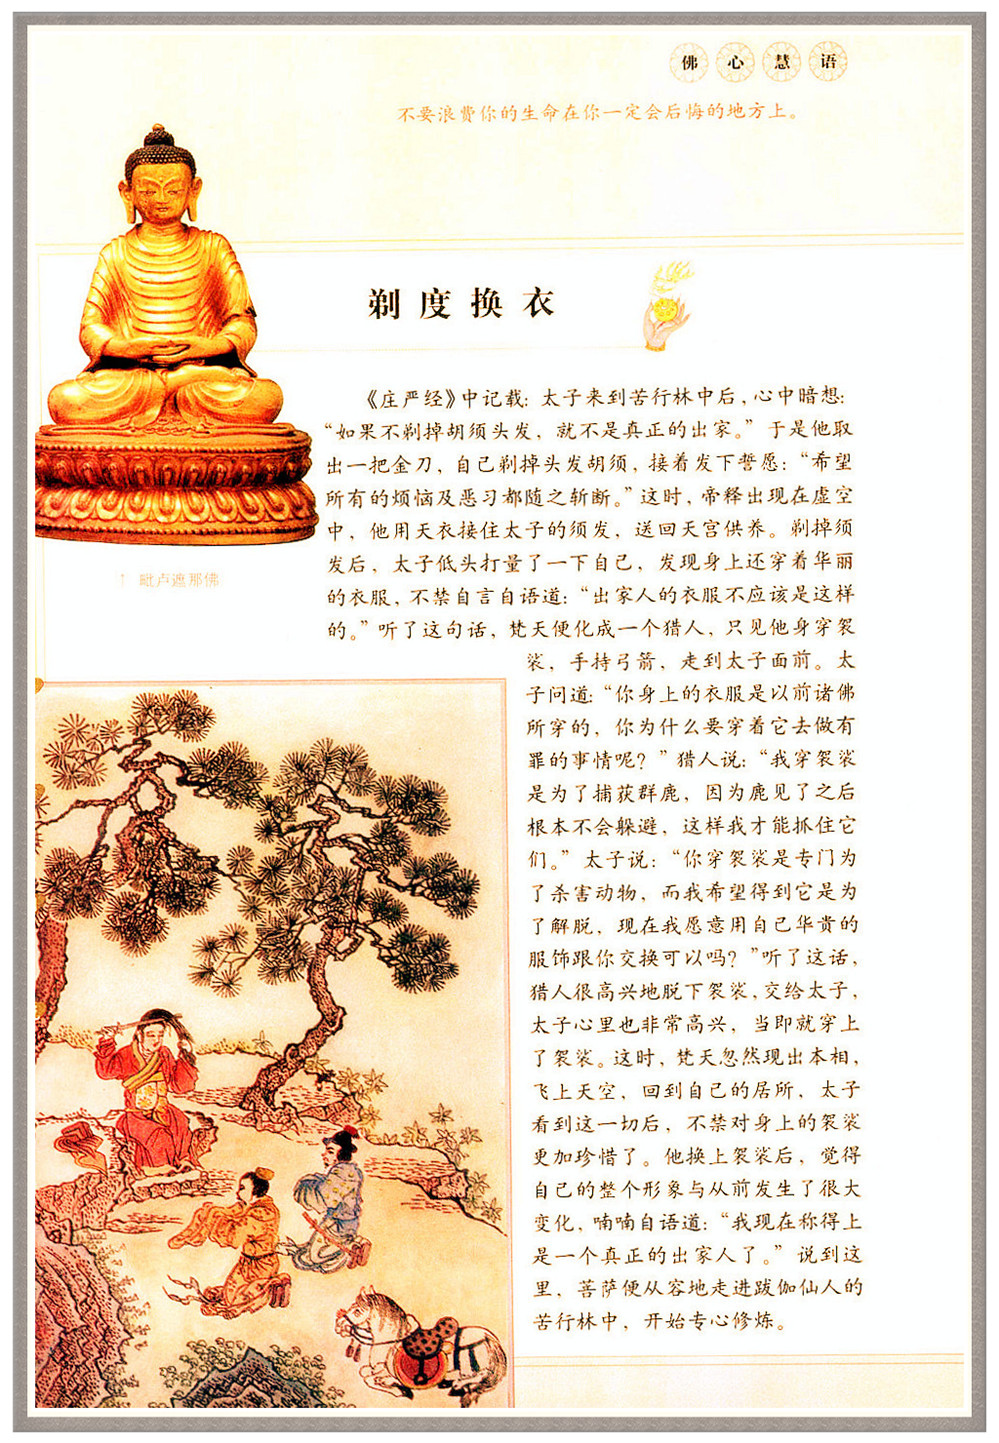 佛心慧语
不要浪费你的生命在你一定会后悔的地方上。
剃度换衣
《庄严经》中记载：太子来到苦行林中后，心中暗想：
“如果不剃掉胡须头发，就不是真正的出家。”于是他取
出一把金刀，自己剃掉头发胡须，接着发下誓愿：“希望
所有的烦恼及恶习都随之斩断。”这时，帝释出现在虚空
中，他用天衣接住太子的须发，送回天宫供养。剃掉须
发后，太子低头打量了一下自己，发现身上还穿着华丽
的衣服，不禁自言自语道：“出家人的衣服不应该是这样
的。”听了这句话，梵天便化成一个猎人，只见他身穿袈
裟，手持弓箭，走到太子面前。太
子问道：“你身上的衣服是以前诸佛
所穿的，你为什么要穿着它去做有
罪的事情呢？”猎人说：“我穿袈裟
是为了捕获群鹿，因为鹿见了之后
根本不会躲避，这样我才能抓住它
们。”太子说：“你穿袈裟是专门为
了杀害动物，而我希望得到它是为
了解脱，现在我愿意用自己华贵的
服饰跟你交换可以吗？”听了这话，
猎人很高兴地脱下袈裟，交给太子，
太子心里也非常高兴，当即就穿上
了袈裟。这时，梵天忽然现出本相，
飞上天空，回到自己的居所，太子
看到这一切后，不禁对身上的袈裟
更加珍惜了。他换上袈裟后，觉得
自己的整个形象与从前发生了很大
变化，喃喃自语道：“我现在称得上
是一个真正的出家人了。”说到这
里，菩萨便从容地走进跋伽仙人的
苦行林中，开始专心修炼。
↑ 毗卢遮那佛